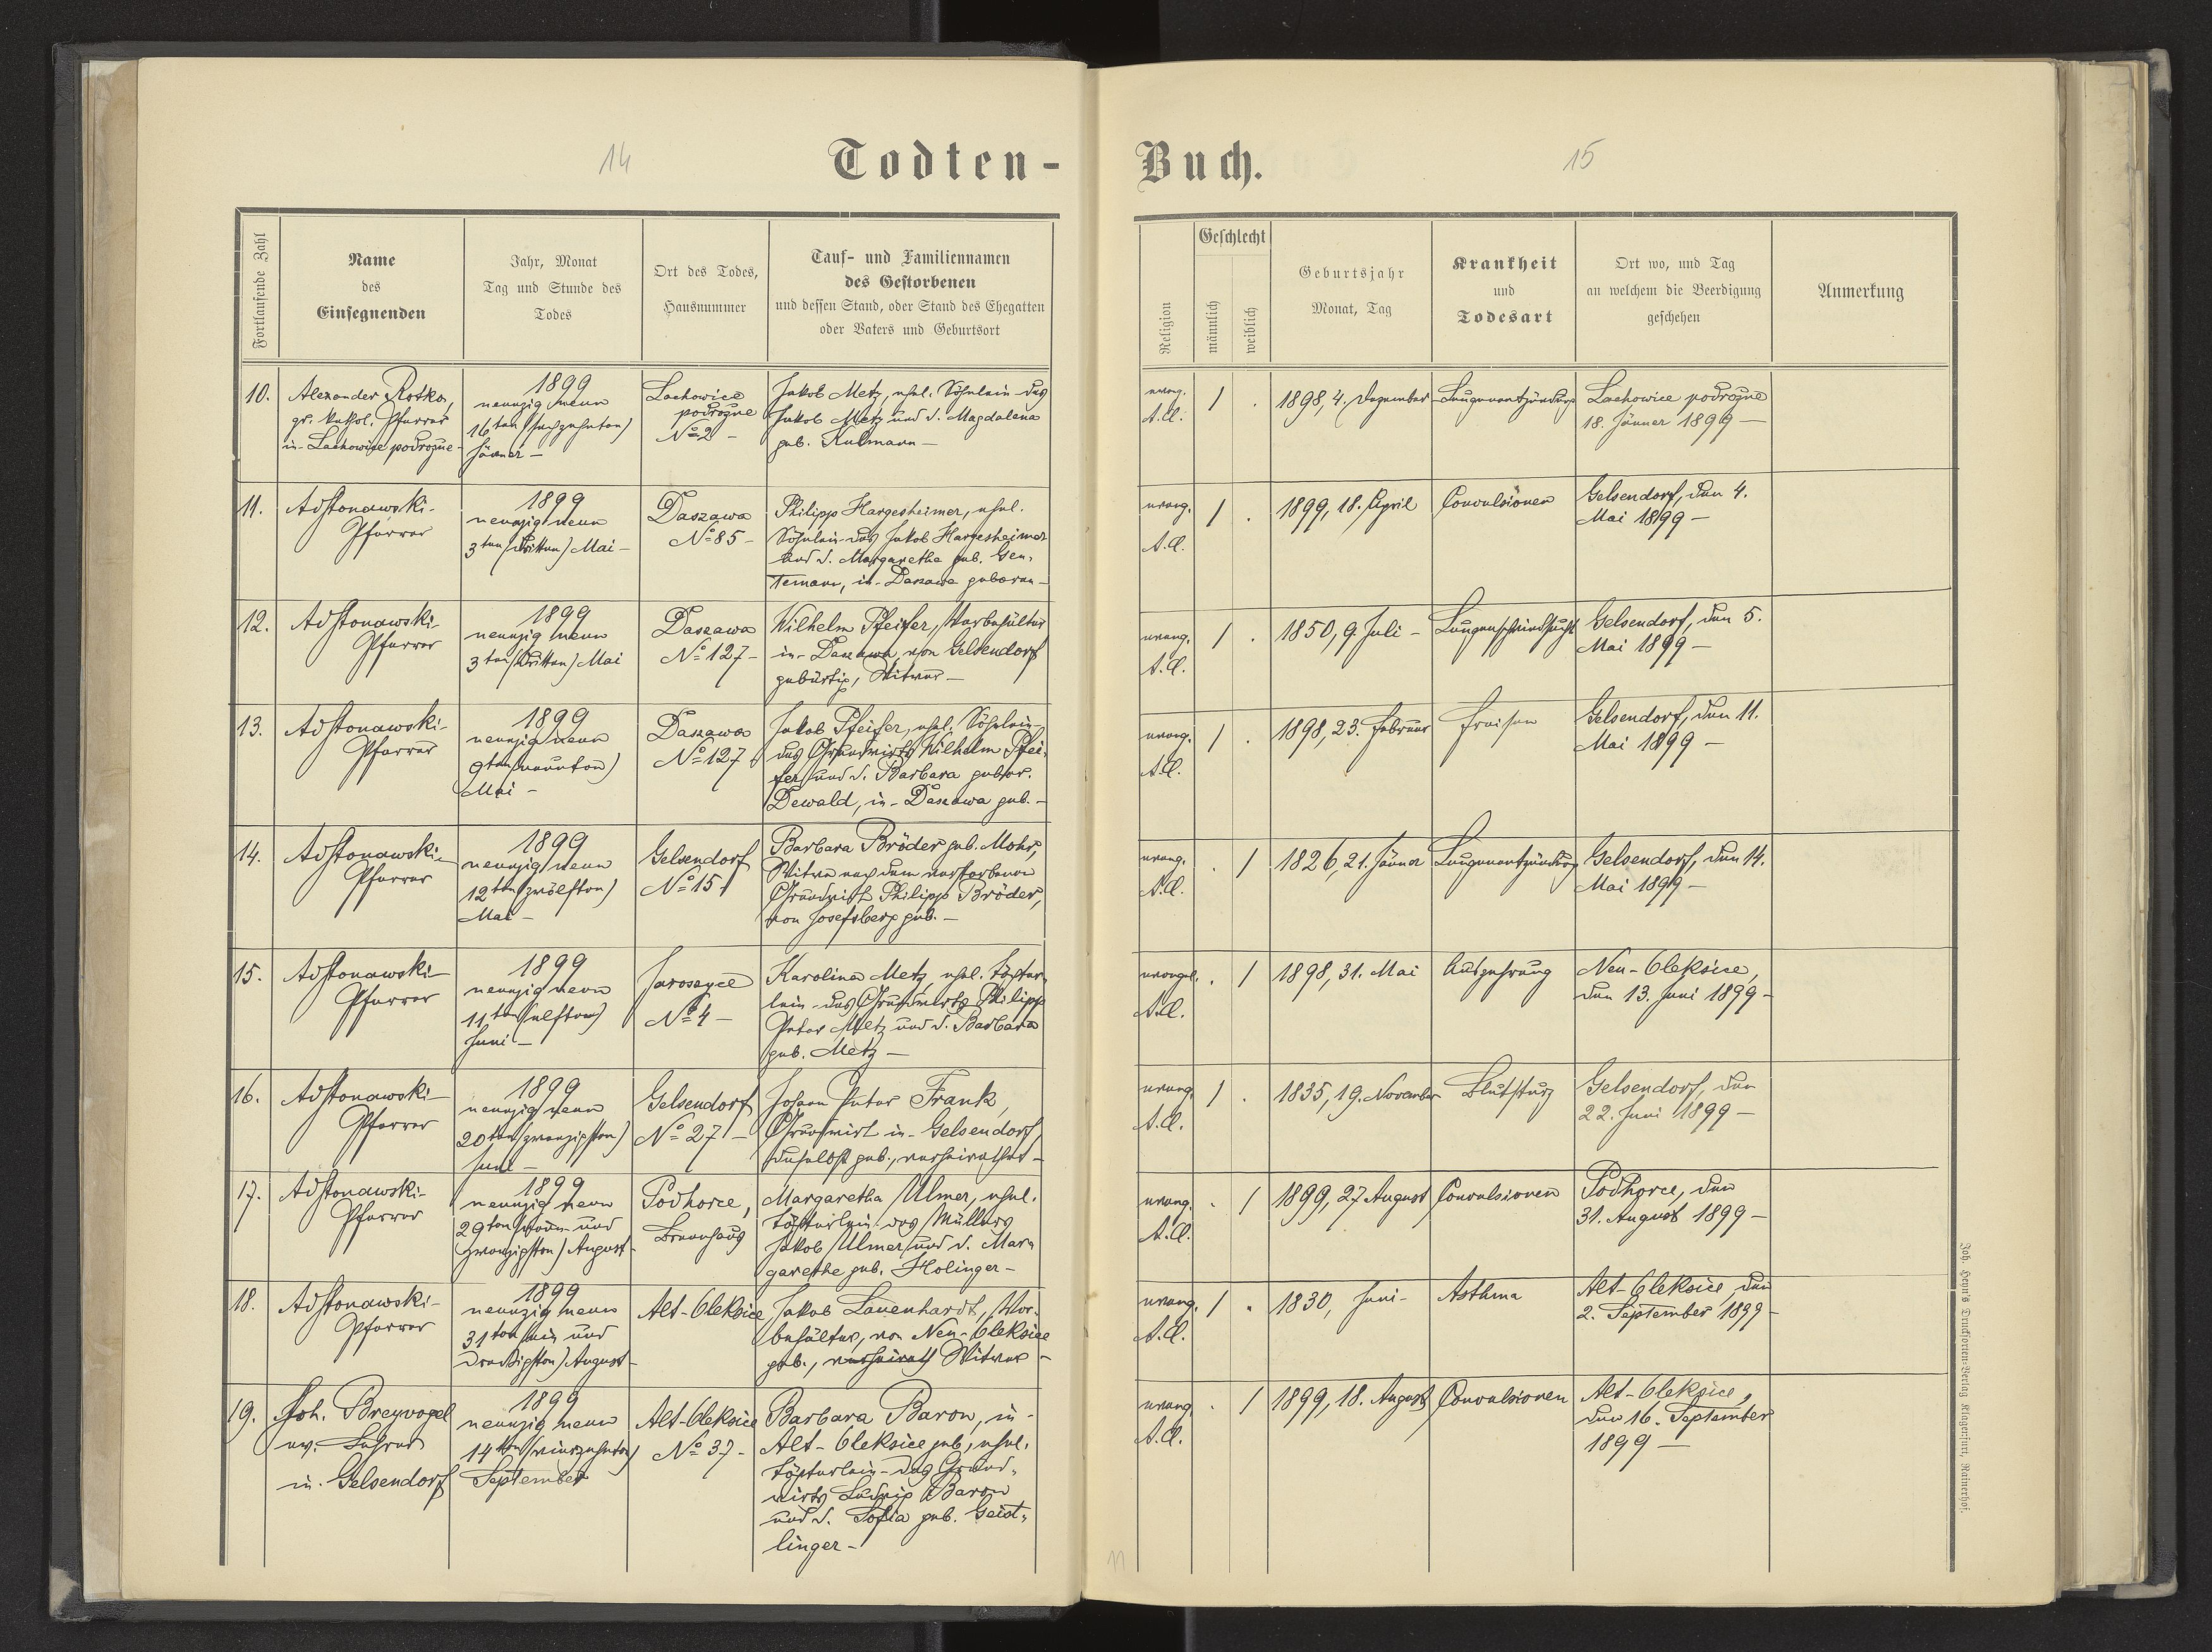 14
Todten-
Buch.
15
Fortlaufende Zahl
Name
des
Einsegnenden
Jahr, Monat
Tag und Stunde des
Todes
Ort des Todes,
Hausnummer
Tauf- und Familiennamen
des Gestorbenen
und dessen Stand, oder Stand des Ehegatten
oder Vaters und Geburtsort
Religion
Geschlecht
männlich
weiblich
Geburtsjahr
Monat, Tag
Krankheit
und
Todesart
Ort wo, und Tag
an welchem die Beerdigung
geschehen
Anmerkung
10.
Alexander Rotko,
gr. kathol. Pfarrer
in Lachowice podrożne
1899
neunzig neun
16ten (sechzehnten)
Jänner –
Lachowice
podrożne
No 2 –
Jakob Metz, ehel. Söhnlein des
Jakob Metz und d. Magdalena
geb. Kulmann –
evang.
A.C.
/ .
1898, 4. Dezember
Lungenentzündung
Lachowice podrożne
18. Jänner 1899 –
11.
Pfarrer
1899
neunzig neun
3ten (dritten) Mai –
Daszawa
No 85 –
Philipp Hargesheimer, ehel.
Söhnlein des Jakob Hargesheimer
und d. Margaretha geb. Gen-
temann, in Daszawa geboren –
evang.
A.C.
/ .
1899, 18. April
Convulsionen
Gelsendorf, den 4.
Mai 1899 –
12.
Pfarrer
1899
neunzig neun
3ten (dritten) Mai
Daszawa
No 127 –
Wilhelm Pfeifer, Vorbehälter
in Daszawa, von Gelsendorf
gebürtig, Witwer –
evang.
A.C.
/ .
1850, 9. Juli –
Lungenschwindsucht
Gelsendorf, den 5.
Mai 1899 –
13.
Pfarrer
1899
neunzig neun
9ten (neunten)
Mai –
Daszawa
No 127
Jakob Pfeifer, ehel. Söhnlein
des Grundwirts Wilhelm Pfei-
fer und d. Barbara gebor.
Dewald, in Daszawa geb. –
evang.
A.C.
/ .
1898, 23. Februar
Fraisen
Gelsendorf, den 11.
Mai 1899 –
14.
Pfarrer
1899
neunzig neun
12ten (zwölften)
Mai –
Gelsendorf
No 15
Barbara Bröder geb. Mohr,
Witwe nach dem verstorbenen
Grundwirt Philipp Bröder,
von Josefsberg geb. –
evang.
A.C.
. /
1826, 21. Jänner
Lungenentzündung
Gelsendorf, den 14.
Mai 1899 –
15.
Pfarrer
1899
neunzig neun
11ten (elften)
Juni –
Jaroszyce
No 4 –
Karolina Metz, ehel. Töchter-
lein des Grundwirts Philipp
Peter Metz und d. Barbara
geb. Metz –
evangel.
A.C.
. /
1898, 31. Mai
Auszehrung
Neu-Oleksice,
den 13. Juni 1899 –
16.
Pfarrer
1899
neunzig neun
20ten (zwanzigsten)
Juni –
Gelsendorf
No 27 –
Johann Peter Frank,
Grundwirt in Gelsendorf,
daselbst geb., verheirathet –
evang.
A.C.
/ .
1835, 19. November
Blutsturz
Gelsendorf, den
22. Juni 1899 –
17.
Pfarrer
1899
neunzig neun
29ten (neun und
zwanzigsten) August –
Podhorce,
Margaretha Ulmer, ehel.
Töchterlein des Müllers
Jakob Ulmer und d. Mar-
garethe geb. Holinger –
evang.
A.C.
. /
1899, 27 August
Convulsionen
Podhorce, den
31. August 1899 –
18.
Pfarrer
1899
neunzig neun
31ten (ein und
dreißigsten) August –
Alt-Oleksice
Jakob Lauenhardt, Vor-
behälter, von Neu-Oleksice
geb., verheirath Witwer –
evang.
A.C.
/ .
1830, Juni –
Asthma
Alt-Oleksice, den
2. September 1899 –
19.
Joh. Breyvogel
ev. Lehrer
in Gelsendorf
1899
neunzig neun
14ten (vierzehnten)
September
Alt-Oleksice
No 37 –
Barbara Baron, in
Alt-Oleksice geb., ehel.
Töchterlein des Grund-
wirts Ludwig Baron
und d. Sofia geb. Geist-
linger –
evang.
A.C.
. /
1899, 18. August
Convulsionen
Alt-Oleksice,
den 16. September
1899 –
11
Joh. Heyn's Drucksorten-Verlag Klagenfurt, Rainerhof.